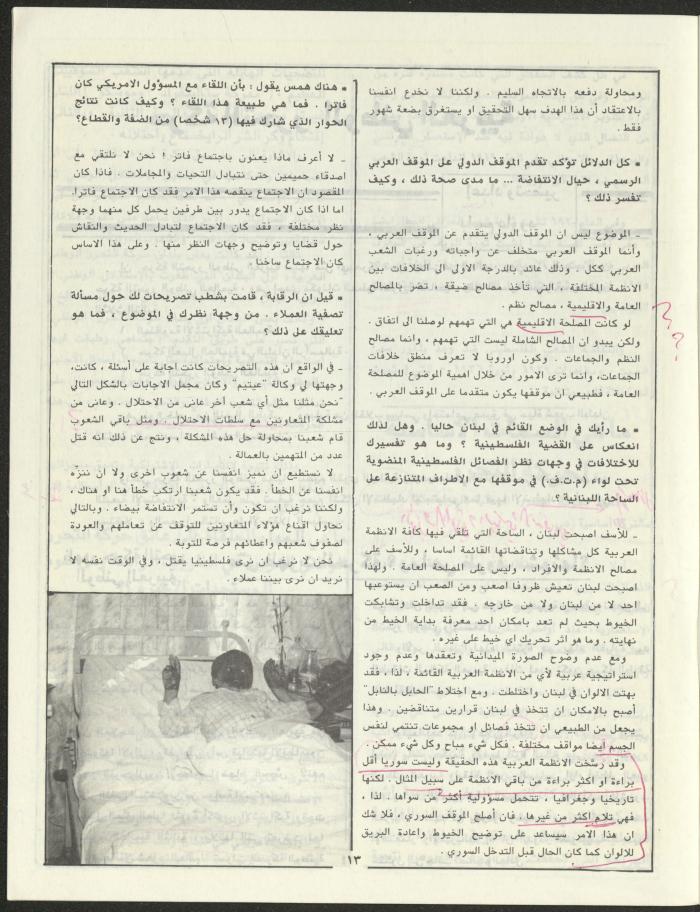 ومحاولة دفعه بالاتجاه السليم . ولكننا لا نخدع انفسنا
بالاعتقاد أن هذا الهدف سهل التحقيق او يستغرق بضعة شهور
فقط .
* كل الدلائل تؤكد تقدم الموقف الدولي على الموقف العربي
الرسمي ، حيال الانتفاضة ... ما مدى صحة ذلك ، وكيف
تفسر ذلك ؟
ـ الموضوع ليس ان الموقف الدولي يتقدم عن الموقف العربي ،
وأنما الموقف العربي متخلف عن واجباته ورغبات الشعب
العربي ككل . وذلك عائد بالدرجة الاولى الى الخلافات بين
الانظمة المختلفة ، التي تأخذ مصالح ضيقة ، تضر بالمصالح
العامة والاقليمية ، مصالح نظم .
لو كانت المصلحة الاقليمية هي التي تهمهم لوصلنا الى اتفاق .
ولكن يبدو ان المصالح الشاملة ليست التي تهمهم ، وانما مصالح
النظم والجماعات . وكون اوروبا لا تعرف منطق خلافات
الجماعات، وانما ترى الامور من خلال اهمية الموضوع للمصلحة
العامة ، فطبيعي ان موقفها يكون متقدما على الموقف العربي .
* ما رأيك في الوضع القائم في لبنان حاليا . وهل لذلك
انعكاس على القضية الفلسطينية ؟ وما هو تفسيرك
للأختلافات في وجهات نظر الفصائل الفلسطينية المنضوية
تحت لواء (م.ت.ف.) في موقفها مع الاطراف المتنازعة على
الساحة اللبنانية ؟.
ـ للأسف اصبحت لبنان ، الساحة التي تلقي فيها كافة الانظمة
العربية كل مشاكلها وتناقضاتها القائمة اساسا ، وللأسف على
مصالح الانظمة والافراد ، وليس على المصلحة العامة . ولهذا
اصبحت لبنان تعيش ظروفا اصعب ومن الصعب ان يستوعبها
احد لا من لبنان ولا من خارجه . فقد تداخلت وتشابكت
الخيوط بحيث لم تعد بامكان احد معرفة بداية الخيط من
نهايته . وما هو اثر تحريك اي خيط على غيره .
ومع عدم وضوح الصورة الميدانية وتعقدها وعدم وجود
استراتيجية عربية لأي من الانظمة العربية القائمة ، لذا ، فقد
بهتت الالوان في لبنان واختلطت . ومع اختلاط "الحابل بالنابل"
أصبح بالامكان ان تتخذ في لبنان قرارين متناقضين . وهذا
يجعل من الطبيعي ان تتخذ فصائل او مجموعات تنتمي لنفس
الجسم أيضا مواقف مختلفة . فكل شيء مباح وكل شيء ممكن .
وقد رسّخت الانظمة العربية هذه الحقيقة وليست سوريا أقل
براءة او اكثر براءة من باقي الانظمة على سبيل المثال . لكنها
تاريخيا وجغرافيا ، تتحمل مسؤولية أكثر من سواها . لذا ،
فهي تلام اكثر من غيرها . فان أصلح الموقف السوري ، فلا شك
ان هذا الامر سيساعد على توضيح الخيوط واعادة البريق
للالوان كما كان الحال قبل التدخل السوري .
* هناك همس يقول : بأن اللقاء مع المسؤول الامريكي كان
فاترا . فما هي طبيعة هذا اللقاء ؟ وكيف كانت نتائج
الحوار الذي شارك فيها (١٣ شخصا) من الضفة والقطاع؟
ـ لا أعرف ماذا يعنون باجتماع فاتر ! نحن لا نلتقي مع
اصدقاء حميمين حتى نتبادل التحيات والمجاملات . فاذا كان
المقصود ان الاجتماع ينقصه هذا الامر فقد كان الاجتماع فاترا.
اما اذا كان الاجتماع يدور بين طرفين يحمل كل منهما وجهة
نظر مختلفة ، فقد كان الاجتماع لتبادل الحديث والنقاش
حول قضايا وتوضيح وجهات النظر منها . وعلى هذا الاساس
كان الاجتماع ساخنا .
* قيل ان الرقابة ، قامت بشطب تصريحات لك حول مسألة
تصفية العملاء . من وجهة نظرك في الموضوع ، فما هو
تعليقك على ذلك ؟
ـ في الواقع ان هذه التصريحات كانت اجابة على أسئلة ، كانت،
وجهتها لي وكالة "عيتيم" وكان مجمل الاجابات بالشكل التالي
"نحن مثلنا مثل أي شعب أخر عانى من الاحتلال . وعانى من
مشكلة المتعاونين مع سلطات الاحتلال . ومثل باقي الشعوب
قام شعبنا بمحاولة حل هذه المشكلة ، ونتج عن ذلك انه قتل
عدد من المتهمين بالعمالة .
لا نستطيع ان نميز انفسنا عن شعوب اخرى ولا ان ننزّه
انفسنا عن الخطأ . فقد يكون شعبنا ارتكب خطأ هنا او هناك ،
ولكننا نرغب ان تكون وأن تستمر الانتفاضة بيضاء . وبالتالي
نحاول اقناع هؤلاء المتعاونين للتوقف عن تعاملهم والعودة
لصفوف شعبهم واعطائهم فرصة للتوبة .
نحن لا نرغب ان نرى فلسطينيا يقتل ، وفي الوقت نفسه لا
نريد ان نرى بيننا عملاء .
١٣